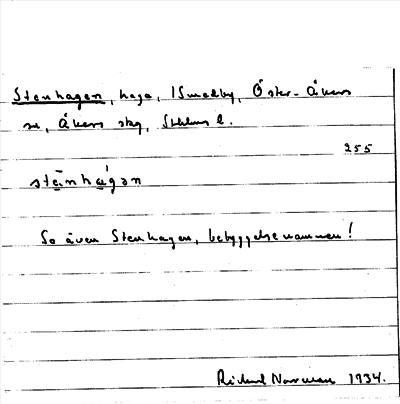 Stenhagen, haga, Smedby, Öster-Åkers
sn, Åkers skg, Sthlms l.
255
stēinhɑ̄́gən
Se även Stenhagen, bebyggelsenamnen!
Richard Norrman 1934.